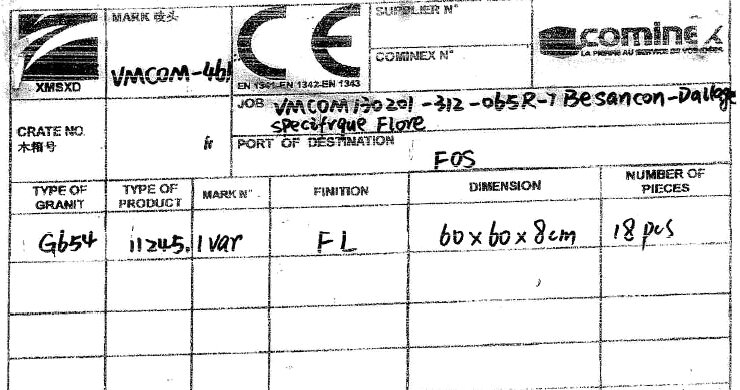 XMSXD
MARK 唛头
VMCOM-461
CE
EN 1341-EN 1342-EN 1343
SUPPLIER N°
COMINEX N°
cominex
LA PIERRE AU SERVICE DE VOS IDÉES
CRATE NO.
木箱号
JOB VMCOM130201-312-065R-7 Besancon-Dallage
specifrque Flore
PORT OF DESTINATION
FOS
TYPE OF GRANIT TYPE OF PRODUCT MARK N° FINITION DIMENSION NUMBER OF PIECES
G654 11245.1var FL 60x60x8cm 18pcs